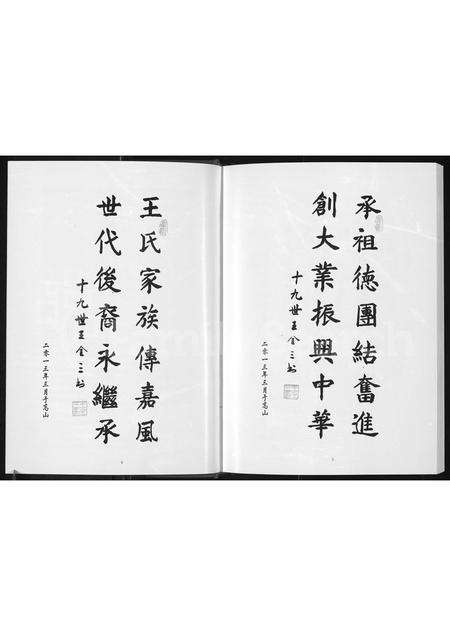 承祖德團結奮進
創大業振興中華
十九世王金三书
二零一三年三月于嵩山
王氏家族傳嘉風
世代後裔永繼承
十九世王金三书
二零一三年三月于嵩山